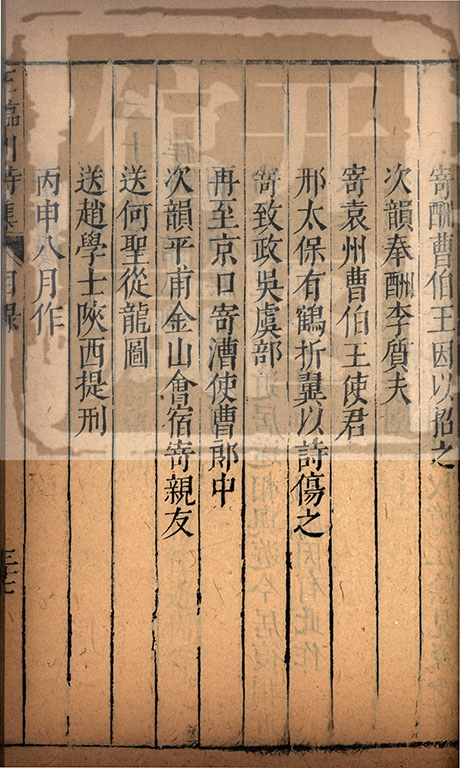 寄酬曹伯玉因以招之
次韻奉酬李質夫
寄袁州曹伯玉使君
邢太保有鶴折翼以詩傷之
寄致政吳虞部
再至京口寄漕使曹郎中
次韻平甫金山會宿寄親友
送何聖從龍圖
送趙學士陝西提刑
丙申八月作
王臨川詩集 目錄 三七